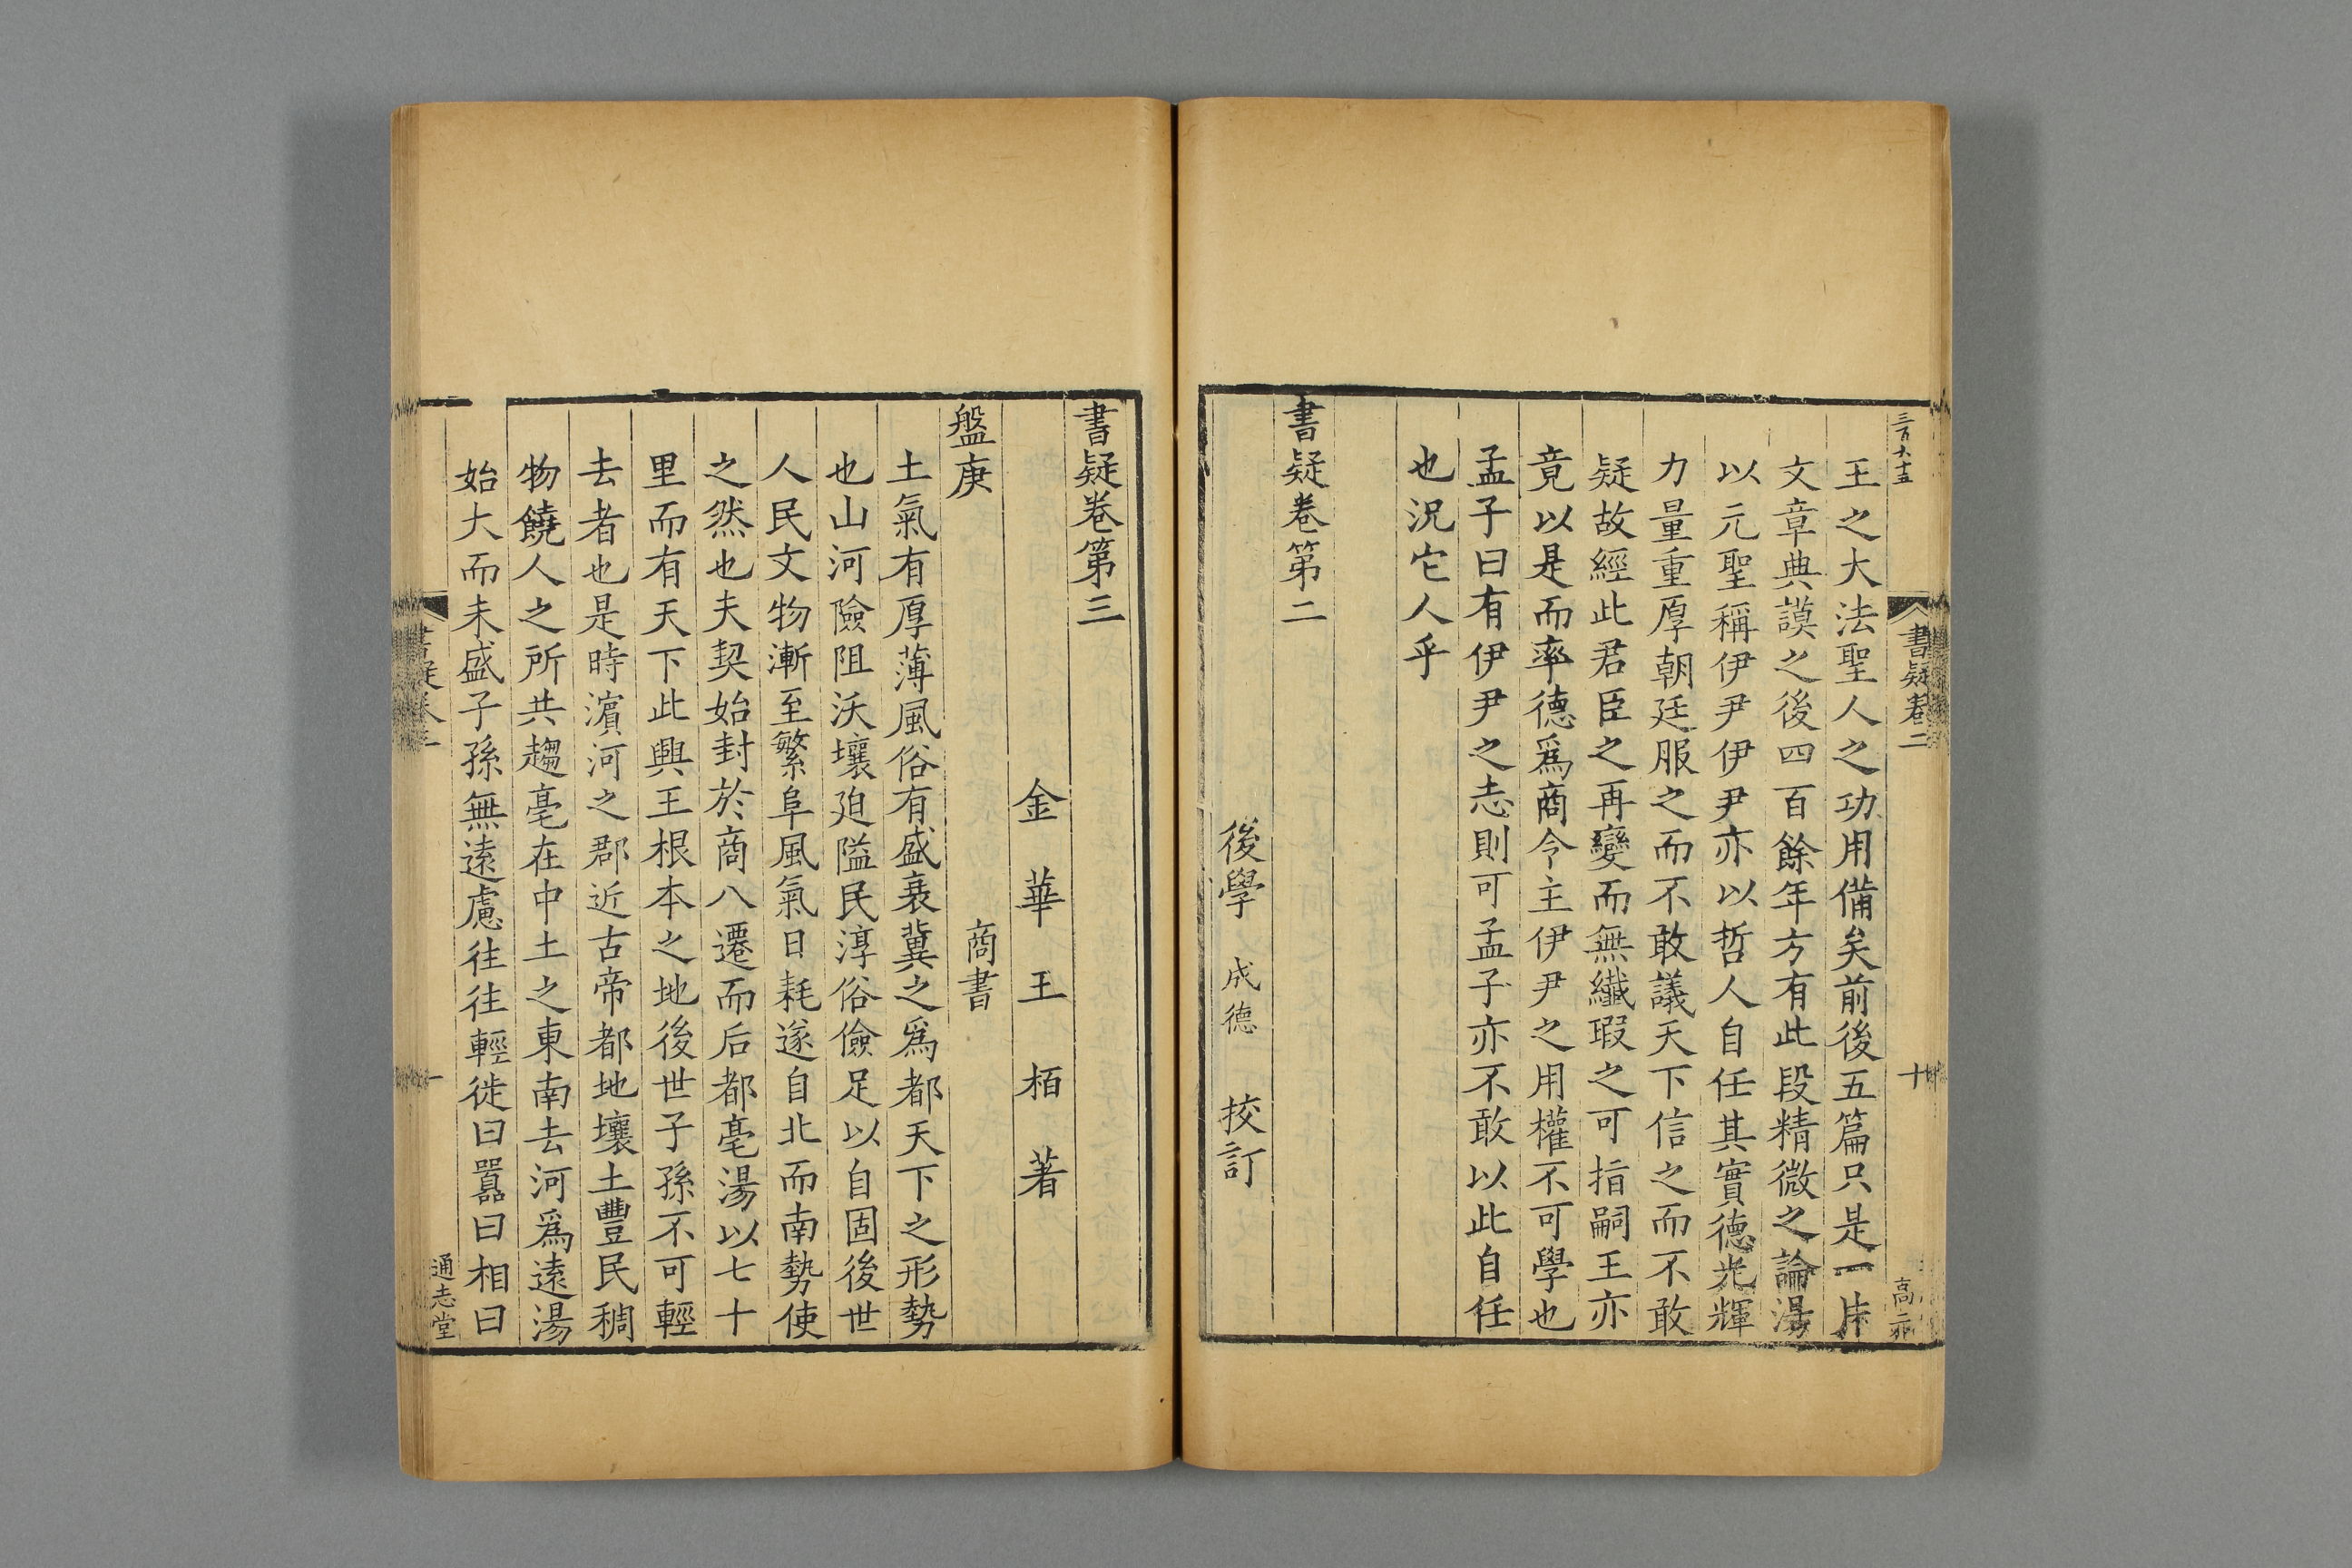 三百六十五
書疑卷二
十
王之大法聖人之功用備矣前後五篇只是一片
文章典謨之後四百餘年方有此段精微之論湯
以元聖稱伊尹伊尹亦以哲人自任其實德光輝
力量重厚朝廷服之而不敢議天下信之而不敢
疑故經此君臣之再變而無纖瑕之可指嗣王亦
竟以是而率德爲商令主伊尹之用權不可學也
孟子曰有伊尹之志則可孟子亦不敢以此自任
也況它人乎
書疑卷第二
後學 成德 挍訂
書疑卷第三
金華王栢著
盤庚 商書
土氣有厚薄風俗有盛衰冀之爲都天下之形勢
也山河險阻沃壤廹隘民淳俗儉足以自固後世
人民文物漸至繁阜風氣日耗遂自北而南勢使
之然也夫契始封於商八遷而后都亳湯以七十
里而有天下此興王根本之地後世子孫不可輕
去者也是時濵河之郡近古帝都地壤土豐民稠
物饒人之所共趨亳在中土之東南去河爲遠湯
始大而未盛子孫無遠慮往往輕徙曰囂曰相曰
書疑卷三
一
通志堂